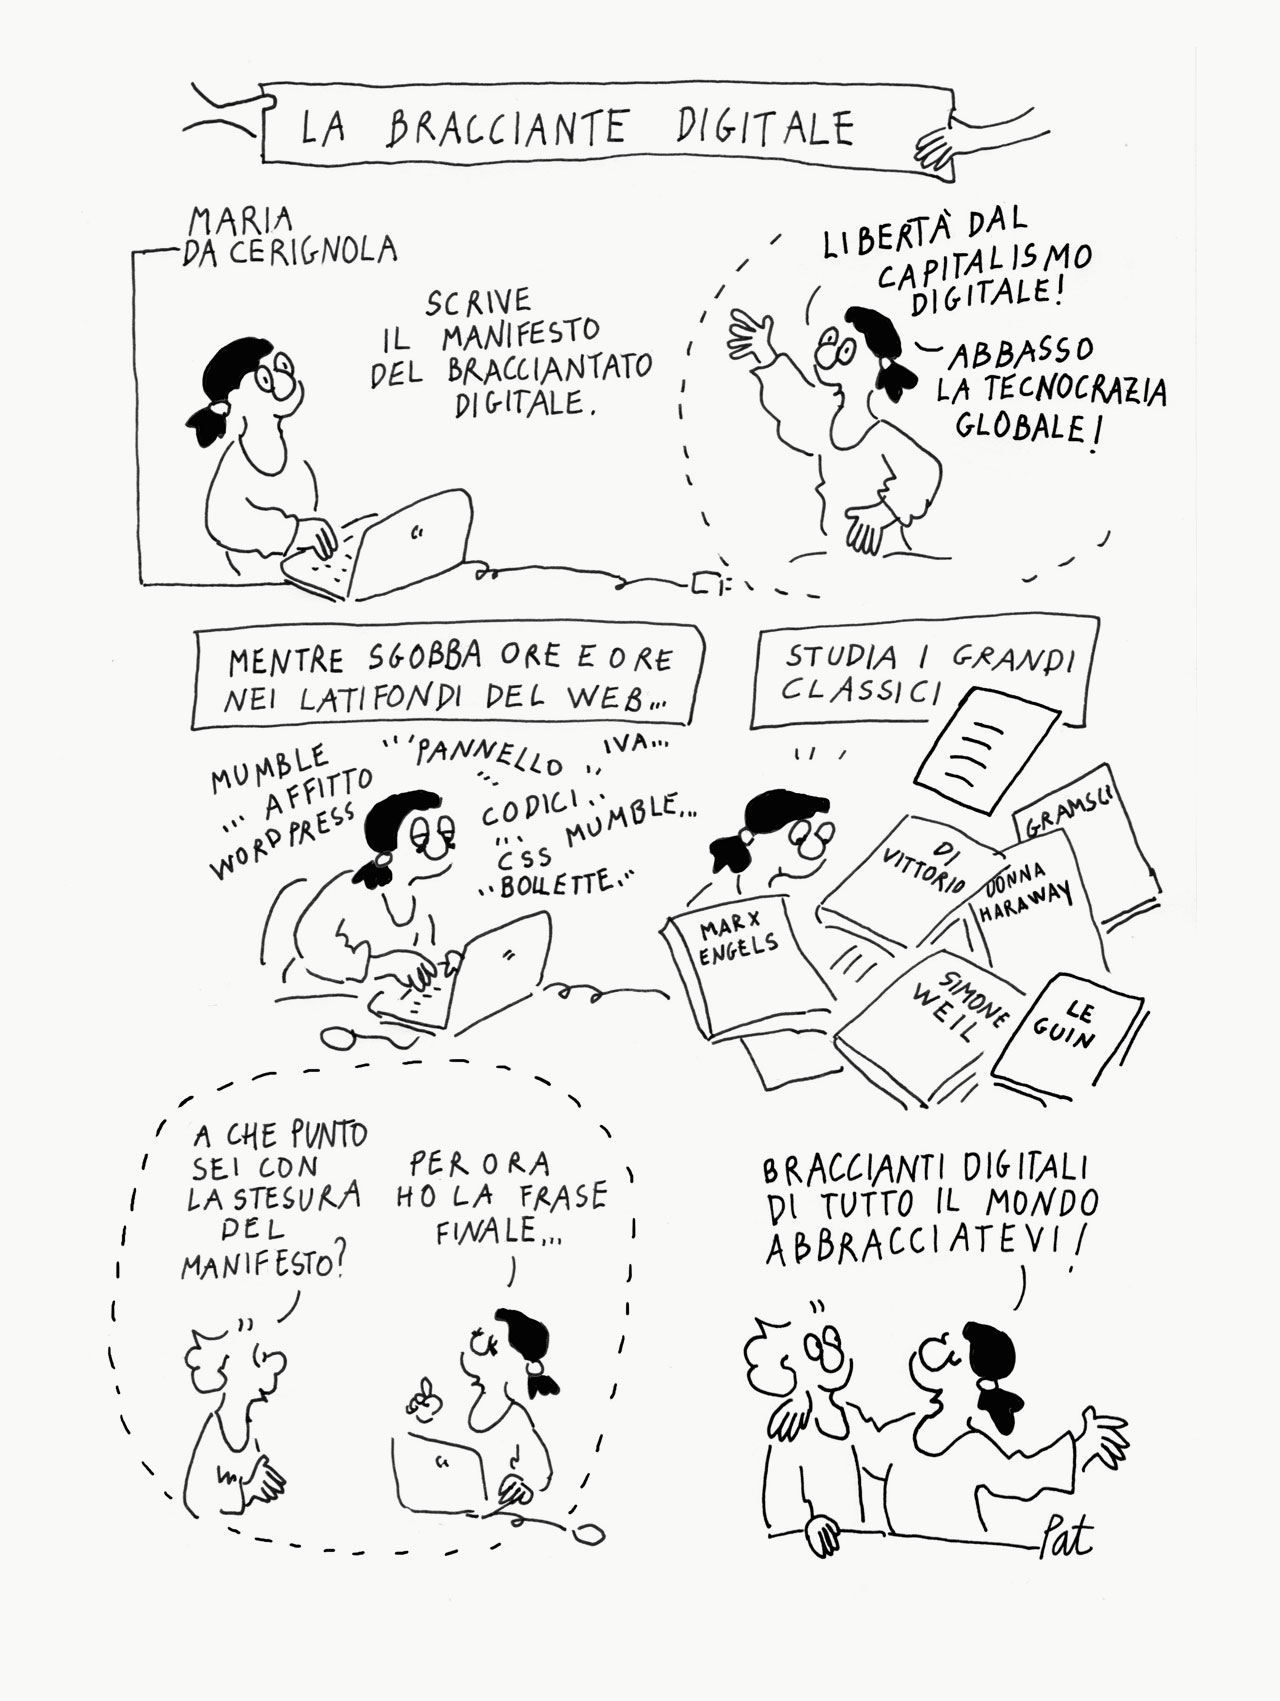 LA BRACCIANTE DIGITALE
MARIA
DA CERIGNOLA
SCRIVE
IL MANIFESTO
DEL BRACCIANTATO
DIGITALE.
LIBERTÀ DAL
CAPITALISMO
DIGITALE!
ABBASSO
LA TECNOCRAZIA
GLOBALE!
MENTRE SGOBBA ORE E ORE
NEI LATIFONDI DEL WEB...
MUMBLE
... AFFITTO
WORDPRESS
PANNELLO
IVA...
CODICI..
... MUMBLE...
CSS
..BOLLETTE...
STUDIA I GRANDI
CLASSICI
GRAMSCI
DI
VITTORIO
DONNA
HARAWAY
MARX
ENGELS
SIMONE
WEIL
LE
GUIN
A CHE PUNTO
SEI CON
LA STESURA
DEL
MANIFESTO?
PER ORA
HO LA FRASE
FINALE...
BRACCIANTI DIGITALI
DI TUTTO IL MONDO
ABBRACCIATEVI!
Pat